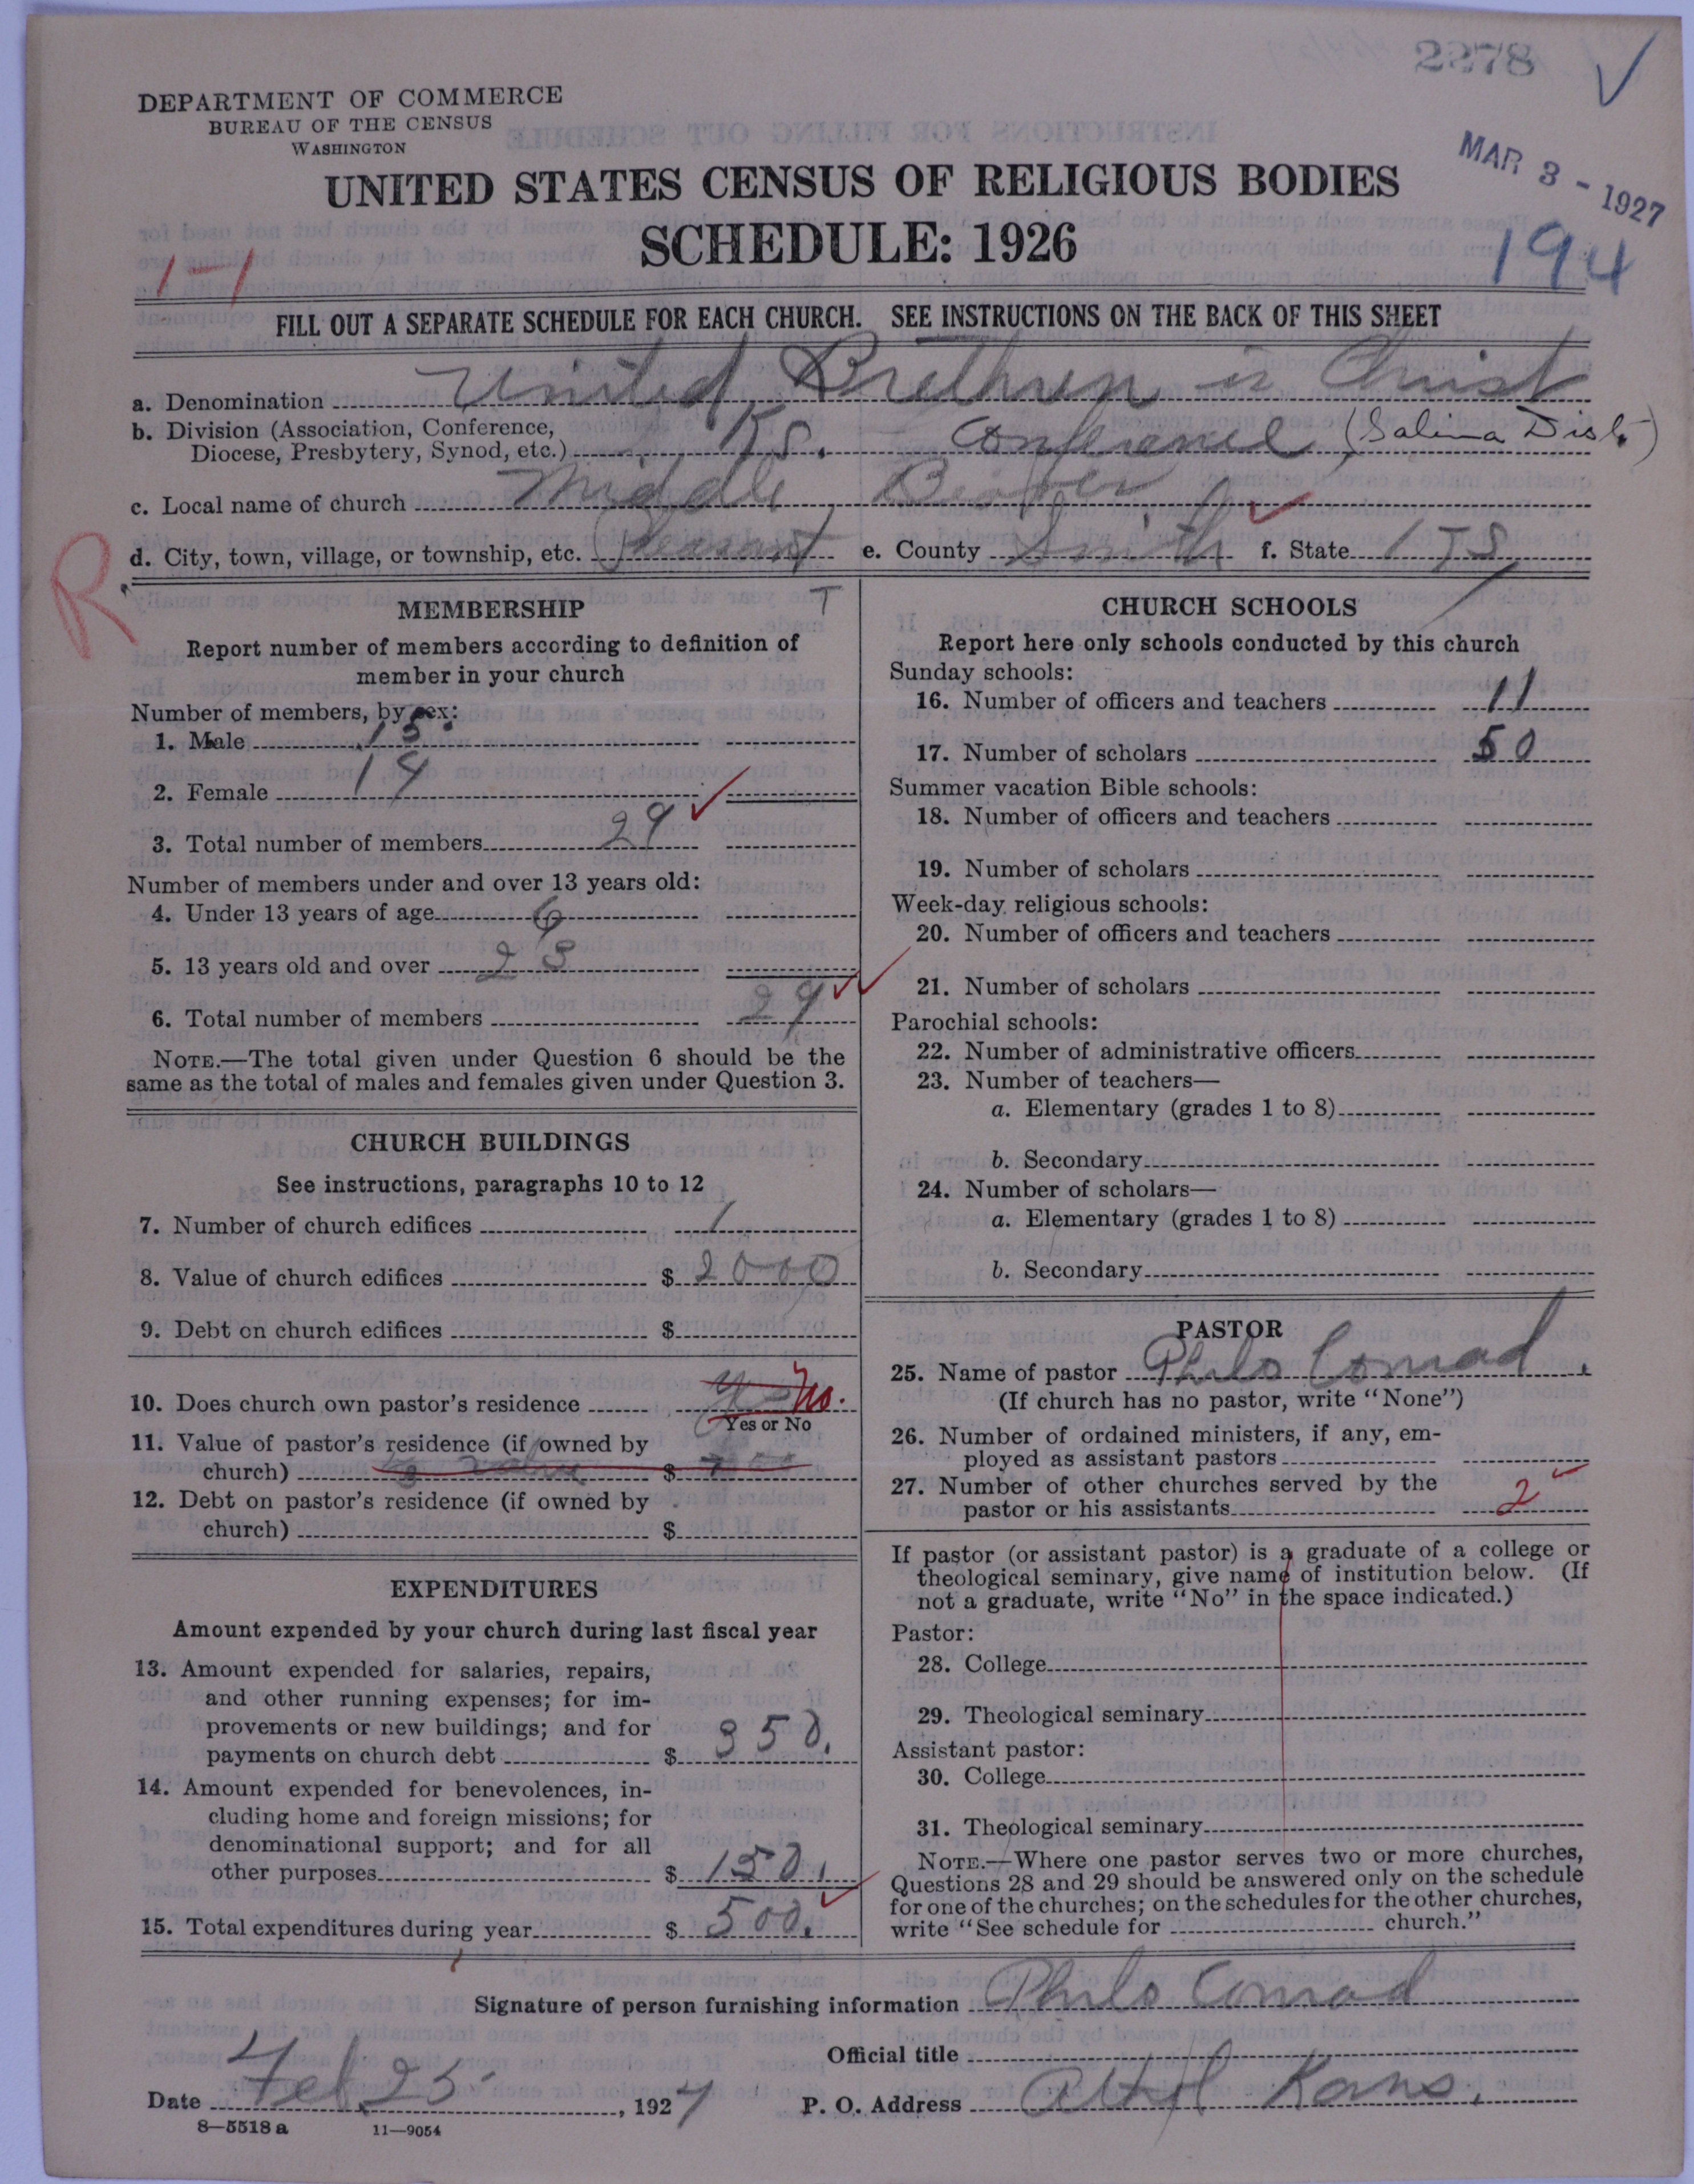 2278
DEPARTMENT OF COMMERCE
BUREAU OF THE CENSUS
WASHINGTON
MAR 3 - 1927
UNITED STATES CENSUS OF RELIGIOUS BODIES
SCHEDULE: 1926
194
1-1
FILL OUT A SEPARATE SCHEDULE FOR EACH CHURCH. SEE INSTRUCTIONS ON THE BACK OF THIS SHEET
a. Denomination United Brethren in Christ
b. Division (Association, Conference, Diocese, Presbytery, Synod, etc.) Ks. Conference (Salina Dist.)
c. Local name of church Middle Beaver
d. City, town, village, or township, etc. Pleasant e. County Smith f. State KS
R
T
MEMBERSHIP
Report number of members according to definition of
member in your church
Number of members, by sex:
1. Male 15
2. Female 14
3. Total number of members 29
Number of members under and over 13 years old:
4. Under 13 years of age 6
5. 13 years old and over 23
6. Total number of members 29
NOTE.—The total given under Question 6 should be the
same as the total of males and females given under Question 3.
CHURCH BUILDINGS
See instructions, paragraphs 10 to 12
7. Number of church edifices 1
8. Value of church edifices $ 2000
9. Debt on church edifices $
10. Does church own pastor's residence No.
Yes or No
11. Value of pastor's residence (if owned by
church) $
12. Debt on pastor's residence (if owned by
church) $
EXPENDITURES
Amount expended by your church during last fiscal year
13. Amount expended for salaries, repairs,
and other running expenses; for im-
provements or new buildings; and for
payments on church debt $ 350.
14. Amount expended for benevolences, in-
cluding home and foreign missions; for
denominational support; and for all
other purposes $ 150.
15. Total expenditures during year $ 500.
CHURCH SCHOOLS
Report here only schools conducted by this church
Sunday schools:
16. Number of officers and teachers 11
17. Number of scholars 50
Summer vacation Bible schools:
18. Number of officers and teachers
19. Number of scholars
Week-day religious schools:
20. Number of officers and teachers
21. Number of scholars
Parochial schools:
22. Number of administrative officers
23. Number of teachers—
a. Elementary (grades 1 to 8)
b. Secondary
24. Number of scholars—
a. Elementary (grades 1 to 8)
b. Secondary
PASTOR
25. Name of pastor Philo Conrad.
(If church has no pastor, write "None")
26. Number of ordained ministers, if any, em-
ployed as assistant pastors
27. Number of other churches served by the
pastor or his assistants 2
If pastor (or assistant pastor) is a graduate of a college or
theological seminary, give name of institution below. (If
not a graduate, write "No" in the space indicated.)
Pastor:
28. College
29. Theological seminary
Assistant pastor:
30. College
31. Theological seminary
NOTE.—Where one pastor serves two or more churches,
Questions 28 and 29 should be answered only on the schedule
for one of the churches; on the schedules for the other churches,
write "See schedule for church."
Signature of person furnishing information Philo Conrad
Official title
Date Feb 25, 1927 P. O. Address Athol Kans.
8—5518 a 11—9054